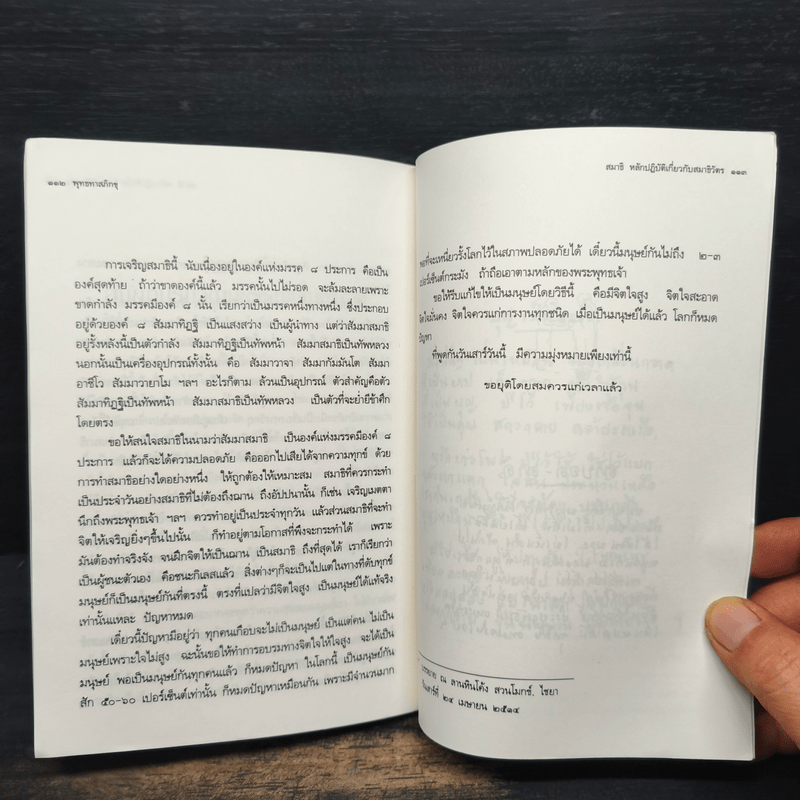 ๑๑๒ พุทธทาสภิกขุ
การเจริญสมาธินี้ นับเนื่องอยู่ในองค์แห่งมรรค ๘ ประการ คือเป็น
องค์สุดท้าย ถ้าว่าขาดองค์นี้แล้ว มรรคนั้นไปไม่รอด จะล้มละลายเพราะ
ขาดกำลัง มรรคมีองค์ ๘ นั้น เรียกว่าเป็นมรรคหนึ่งทางหนึ่ง ซึ่งประกอบ
อยู่ด้วยองค์ ๘ สัมมาทิฏฐิ เป็นแสงสว่าง เป็นผู้นำทาง แต่ว่าสัมมาสมาธิ
อยู่รั้งหลังนี้เป็นตัวกำลัง สัมมาทิฏฐิเป็นทัพหน้า สัมมาสมาธิเป็นทัพหลวง
นอกนั้นเป็นเครื่องอุปกรณ์ทั้งนั้น คือ สัมมาวาจา สัมมากัมมันโต สัมมา
อาชีโว สัมมาวายาโม ฯลฯ อะไรก็ตาม ล้วนเป็นอุปกรณ์ ตัวสำคัญคือตัว
สัมมาทิฏฐิเป็นทัพหน้า สัมมาสมาธิเป็นทัพหลวง เป็นตัวที่จะย่ำยีข้าศึก
โดยตรง
ขอให้สนใจสมาธิในนามว่าสัมมาสมาธิ เป็นองค์แห่งมรรคมีองค์ ๘
ประการ แล้วก็จะได้ความปลอดภัย คือออกไปเสียได้จากความทุกข์ ด้วย
การทำสมาธิอย่างใดอย่างหนึ่ง ให้ถูกต้องให้เหมาะสม สมาธิที่ควรกระทำ
เป็นประจำวันอย่างสมาธิที่ไม่ต้องถึงฌาน ถึงอัปปนานั้น ก็เช่น เจริญเมตตา
นึกถึงพระพุทธเจ้า ฯลฯ ควรทำอยู่เป็นประจำทุกวัน แล้วส่วนสมาธิที่จะทำ
จิตให้เจริญยิ่งๆขึ้นไปนั้น ก็ทำอยู่ตามโอกาสที่พึงจะกระทำได้ เพราะ
มันต้องทำจริงจัง จนฝึกจิตให้เป็นฌาน เป็นสมาธิ ถึงที่สุดได้ เราก็เรียกว่า
เป็นผู้ชนะตัวเอง คือชนะกิเลสแล้ว สิ่งต่างๆก็จะเป็นไปแต่ในทางที่ดับทุกข์
มนุษย์ก็เป็นมนุษย์กันที่ตรงนี้ ตรงที่แปลว่ามีจิตใจสูง เป็นมนุษย์ได้แท้จริง
เท่านั้นแหละ ปัญหาหมด
เดี๋ยวนี้ปัญหามีอยู่ว่า ทุกคนเกือบจะไม่เป็นมนุษย์ เป็นแต่คน ไม่เป็น
มนุษย์เพราะใจไม่สูง ฉะนั้นขอให้ทำการอบรมทางจิตใจให้ใจสูง จะได้เป็น
มนุษย์ พอเป็นมนุษย์กันทุกคนแล้ว ก็หมดปัญหา ในโลกนี้ เป็นมนุษย์กัน
สัก ๕๐-๖๐ เปอร์เซ็นต์เท่านั้น ก็หมดปัญหาเหมือนกัน เพราะมีจำนวนมาก
สมาธิ หลักปฏิบัติเกี่ยวกับสมาธิวัตร ๑๑๓
พอที่จะเหนี่ยวรั้งโลกไว้ในสภาพปลอดภัยได้ เดี๋ยวนี้มนุษย์กันไม่ถึง ๒-๓
เปอร์เซ็นต์กระมัง ถ้าถือเอาตามหลักของพระพุทธเจ้า
ขอให้รีบแก้ไขให้เป็นมนุษย์โดยวิธีนี้ คือมีจิตใจสูง จิตใจสะอาด
จิตใจมั่นคง จิตใจควรแก่การงานทุกชนิด เมื่อเป็นมนุษย์ได้แล้ว โลกก็หมด
ปัญหา
ที่พูดกันวันเสาร์วันนี้ มีความมุ่งหมายเพียงเท่านี้
ขอยุติโดยสมควรแก่เวลาแล้ว
บรรยาย ณ ลานหินโค้ง สวนโมกข์. ไชยา
วันเสาร์ที่ ๒๔ เมษายน ๒๕๑๔